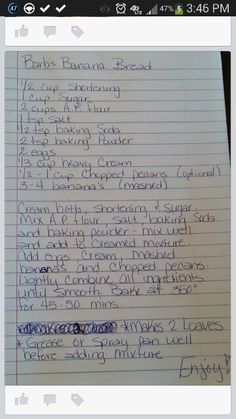 47
4G
47%
3:46 PM
Barb's Banana Bread
1/2 cup Shortening
1 cup Sugar
2 cups A.P. flour
1 tsp salt
1/2 tsp baking Soda
2 tsp baking Powder
2 eggs
1/3 cup heavy Cream
1/2 - 1 cup Chopped pecans (optional)
3-4 banana's (mashed)
Cream both, shortening & Sugar.
Mix A.P. flour, Salt, baking Soda
and baking powder - mix well
and add to Creamed mixture.
Add eggs, Cream, mashed
bananas and Chopped pecans.
Lightly Combine All ingredients
until Smooth. Bake at 350°
for 45-50 mins.
*Makes 2 Loaves
*Grease or Spray pan well
before adding mixture
Enjoy!